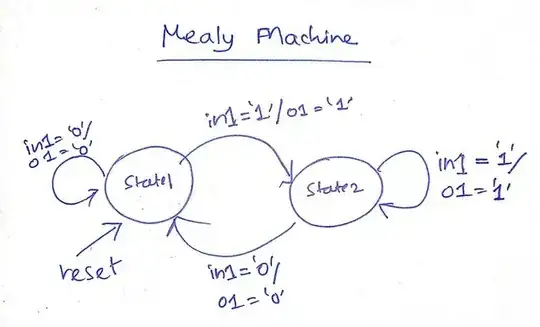 Mealy Machine
in1='0'/
01='0'
in1='1'/01='1'
State1
State2
in1='1'/
01='1'
reset
in1='0'/
01='0'